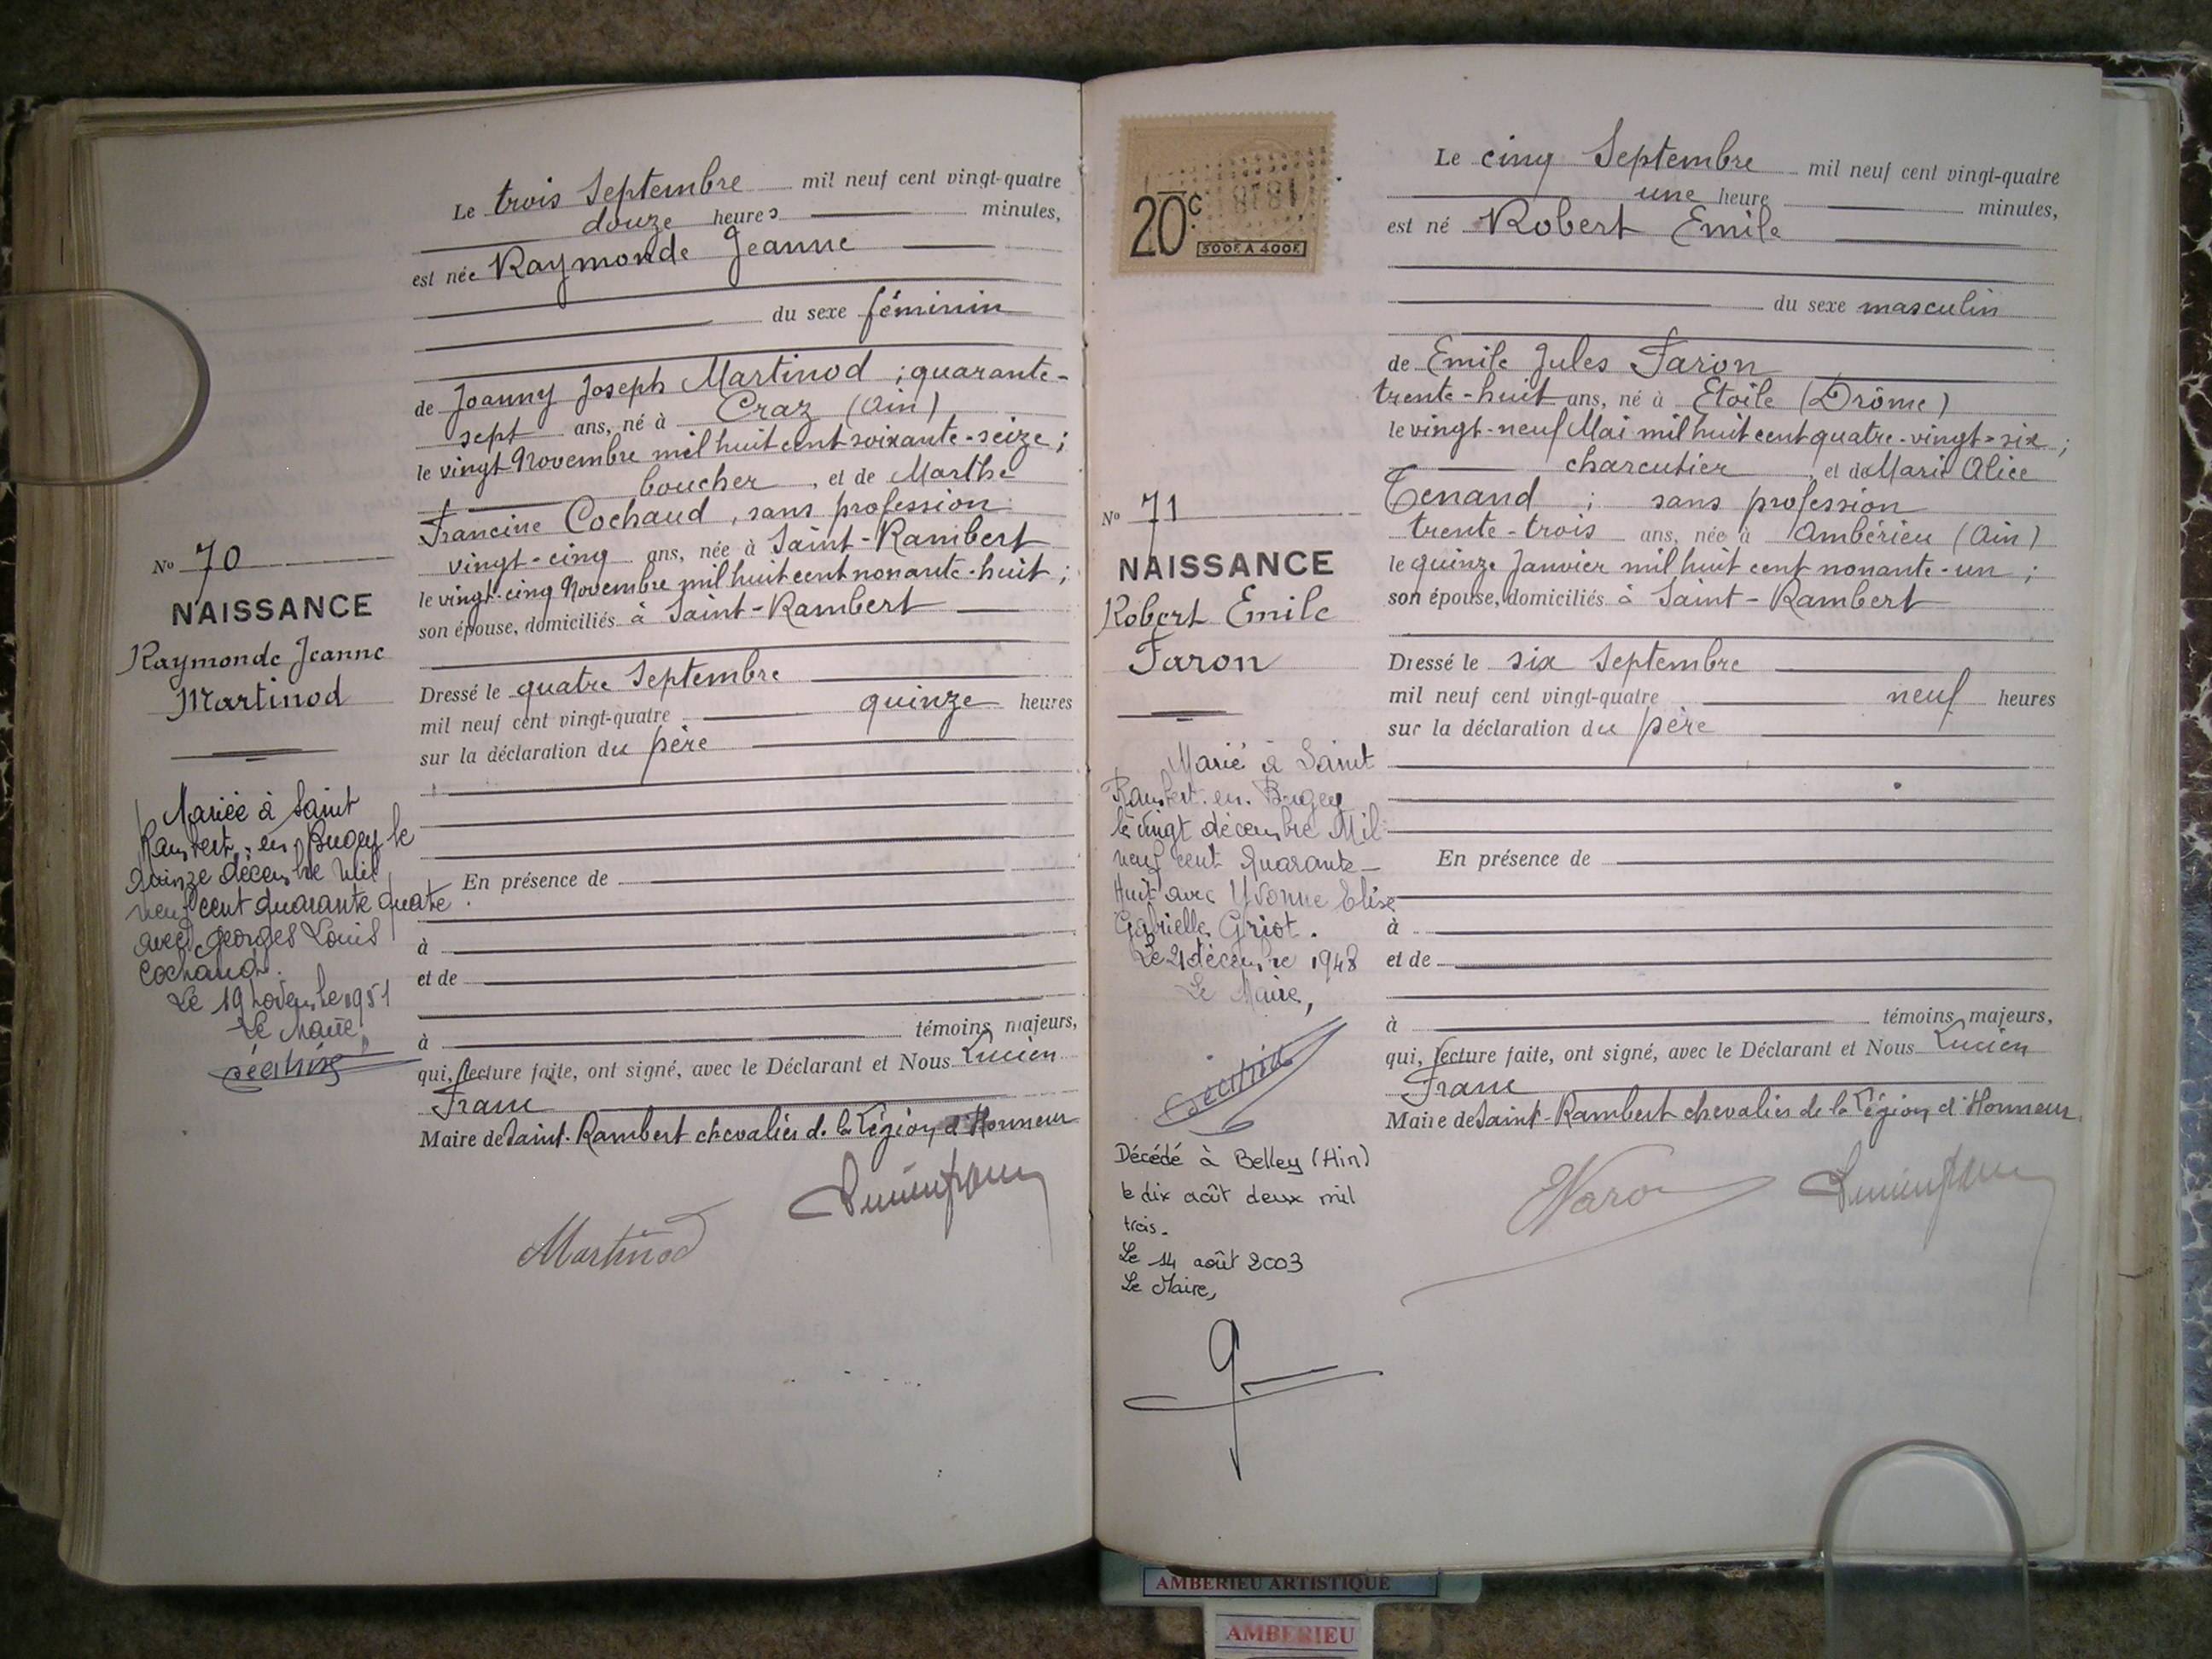 Le trois Septembre mil neuf cent vingt-quatre
douze heures minutes,
est née Raymonde Jeanne
du sexe féminin
de Joanny Joseph Martinod ; quarante-
sept ans, né à Craz (Ain)
le vingt Novembre mil huit cent soixante-seize ;
boucher, et de Marthe
Francine Cochaud, sans profession
vingt-cinq ans, née à Saint-Rambert
le vingt-cinq Novembre mil huit cent nonante-huit ;
son épouse, domiciliés à Saint-Rambert
Dressé le quatre Septembre
mil neuf cent vingt-quatre quinze heures
sur la déclaration du père
En présence de
à
et de
à témoins majeurs,
qui, lecture faite, ont signé, avec le Déclarant et Nous Lucien
Franc
Maire de Saint-Rambert chevalier de la Légion d'Honneur
Martinod
No 70
NAISSANCE
Raymonde Jeanne
Martinod
Mariée à Saint
Rambert-en-Bugey le
quinze décembre Mil
neuf cent quarante quatre
avec Georges Louis
Cochaud.
Le 19 novembre 1951
Le Maire,
20c.
500F. A 400F.
No 71
NAISSANCE
Robert Emile
Faron
Marié à Saint
Rambert-en-Bugey
le vingt décembre Mil
neuf cent Quarante-
Huit avec Yvonne Elise
Gabrielle Griot.
Le 21 décembre 1948
Le Maire,
Décédé à Belley (Ain)
le dix août deux mil
trois.
Le 14 août 2003
Le Maire,
Le cinq Septembre mil neuf cent vingt-quatre
une heure minutes,
est né Robert Emile
du sexe masculin
de Emile Jules Faron
trente-huit ans, né à Etoile (Drôme)
le vingt-neuf Mai mil huit cent quatre-vingt-six ;
charcutier, et de Marie Alice
Tenand ; sans profession
trente-trois ans, née à Ambérieu (Ain)
le quinze Janvier mil huit cent nonante-un ;
son épouse, domiciliés à Saint-Rambert
Dressé le six Septembre
mil neuf cent vingt-quatre neuf heures
sur la déclaration du père
En présence de
à
et de
à témoins majeurs,
qui, lecture faite, ont signé, avec le Déclarant et Nous Lucien
Franc
Maire de Saint-Rambert chevalier de la Légion d'Honneur
AMBERIEU ARTISTIQUE
AMBERIEU